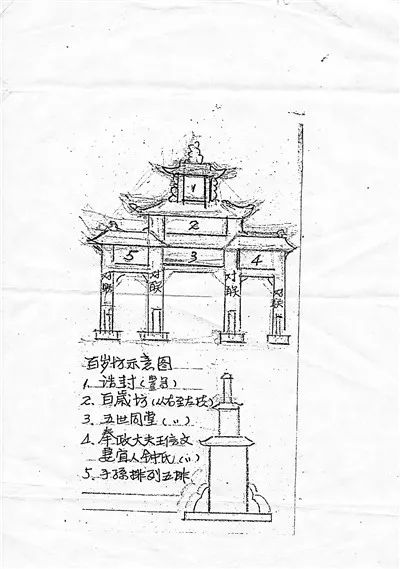 1
2
5
3
4
对联
对联
对联
对联
百岁坊示意图
1. 诰封(竖写)
2. 百歳坊(从右至左读)
3. 五世同堂(〃)
4. 奉政大夫王信文
宜人钟氏(〃)
5. 子孫排列五排